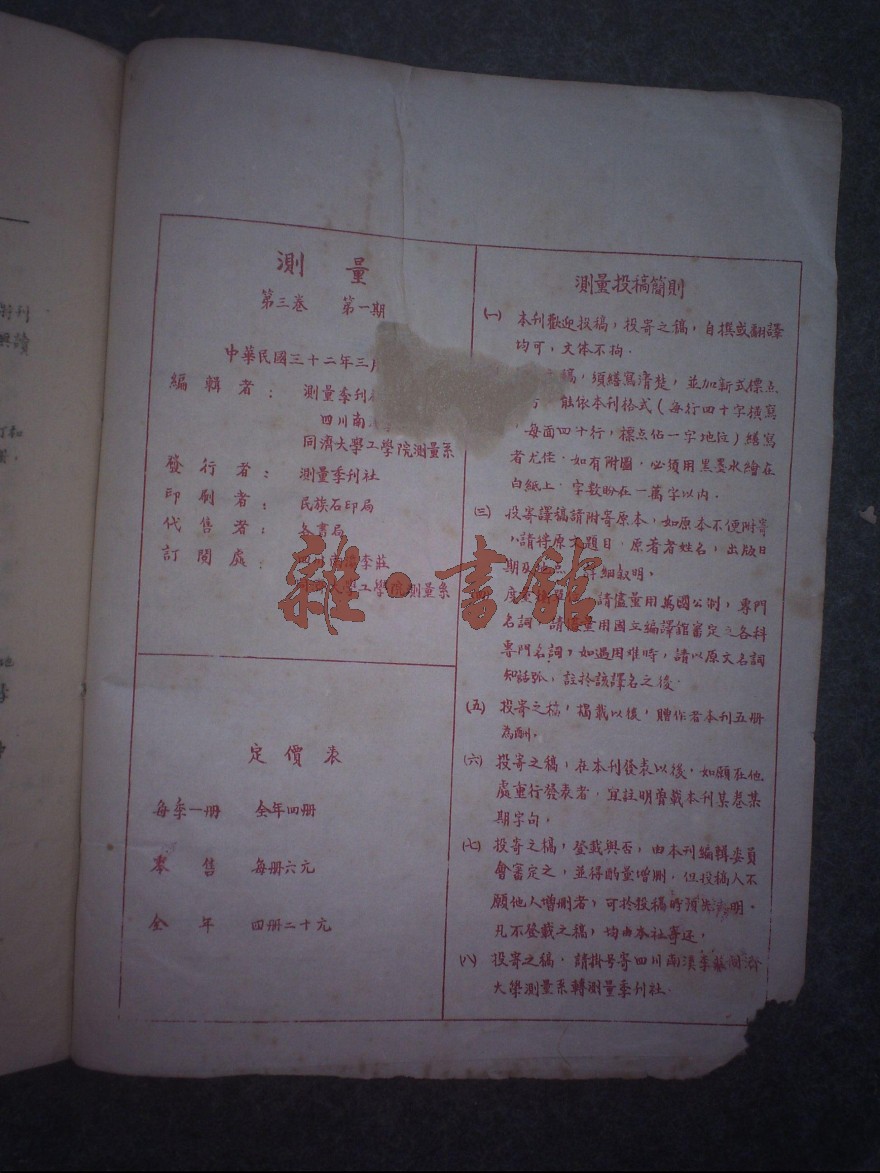 測量
第三卷 第一期
中華民國三十二年三月
編輯者： 測量季刊
四川南
同濟大學工學院測量系
發行者： 測量季刊社
印刷者： 民族石印局
代售者： 各書局
訂閱處： 四川南溪李莊
同濟大學工學院測量系
定價表
每季一冊 全年四冊
零售 每冊六元
全年 四冊二十元
測量投稿簡則
(一) 本刊歡迎投稿，投寄之稿，自撰或翻譯
均可，文体不拘．
稿，須繕寫清楚，並加新式標点
能依本刊格式（每行四十字横寫
，每面四十行，標点佔一字地位）繕寫
者尤佳．如有附圖，必須用黑墨水繪在
白紙上．字數盼在一萬字以内．
(三) 投寄譯稿請附寄原本，如原本不便附寄
，請将原文題目．原著者姓名，出版日
期及 詳細敘明．
度 請儘量用萬國公制，專門
名詞，請儘量用國立編譯舘審定之各科
專門名詞，如遇困难時，請以原文名詞
加括弧，註於該譯名之後．
(五) 投寄之稿，揭載以後，贈作者本刊五册
為酬．
(六) 投寄之稿，在本刊發表以後，如願在他
處重行發表者，宜註明曾載本刊某卷某
期字句．
(七) 投寄之稿，登載與否，由本刊編輯委員
會審定之，並得酌量增刪．但投稿人不
願他人增刪者，可於投稿時預先 明．
凡不登載之稿，均由本社寄还．
(八) 投寄之稿，請掛号寄四川南溪李莊同濟
大學測量系轉測量季刊社．
雜·書舘